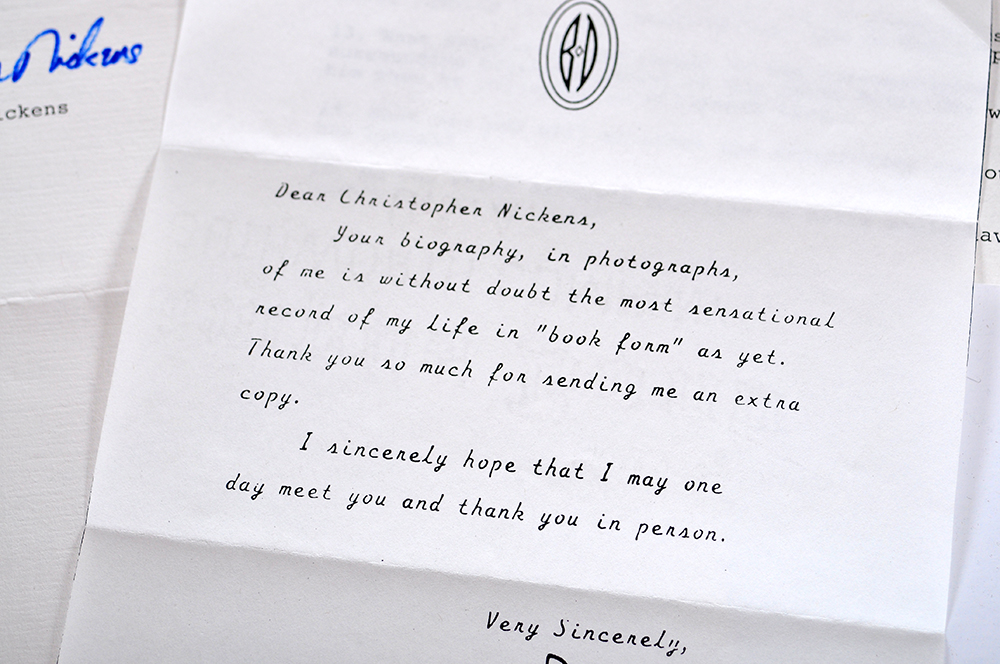 Nickens
ickens
BD
Dear Christopher Nickens,
Your biography, in photographs,
of me is without doubt the most sensational
record of my life in "book form" as yet.
Thank you so much for sending me an extra
copy.
I sincerely hope that I may one
day meet you and thank you in person.
Very Sincerely,